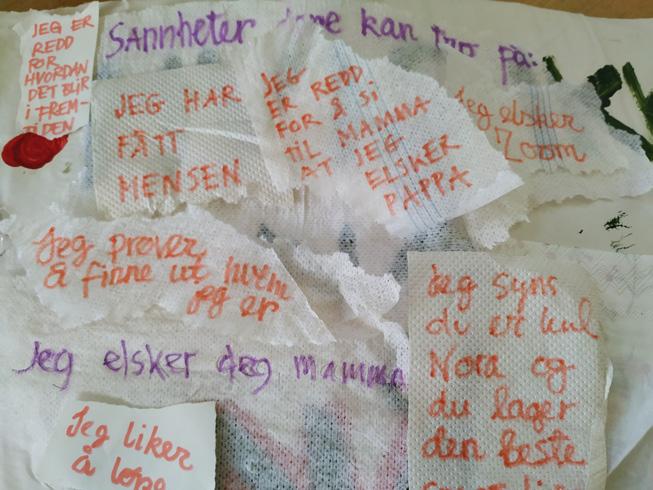 JEG ER
REDD
FOR
HVORDAN
DET BLIR
i FREM-
TiDEN
SANNHETER dere kan tro på:
JEG HAR
FÅTT
MENSEN
JEG
ER REDD.
FOR Å Si
TiL MAMMA
AT JEG
ELSKER
PAPPA
Jeg elsker
Zoom
Jeg prøver
å finne ut hvem
jeg er
Jeg elsker deg mamma
Jeg syns
du er kul
Nora og
du lager
den beste
Jeg liker
å løpe